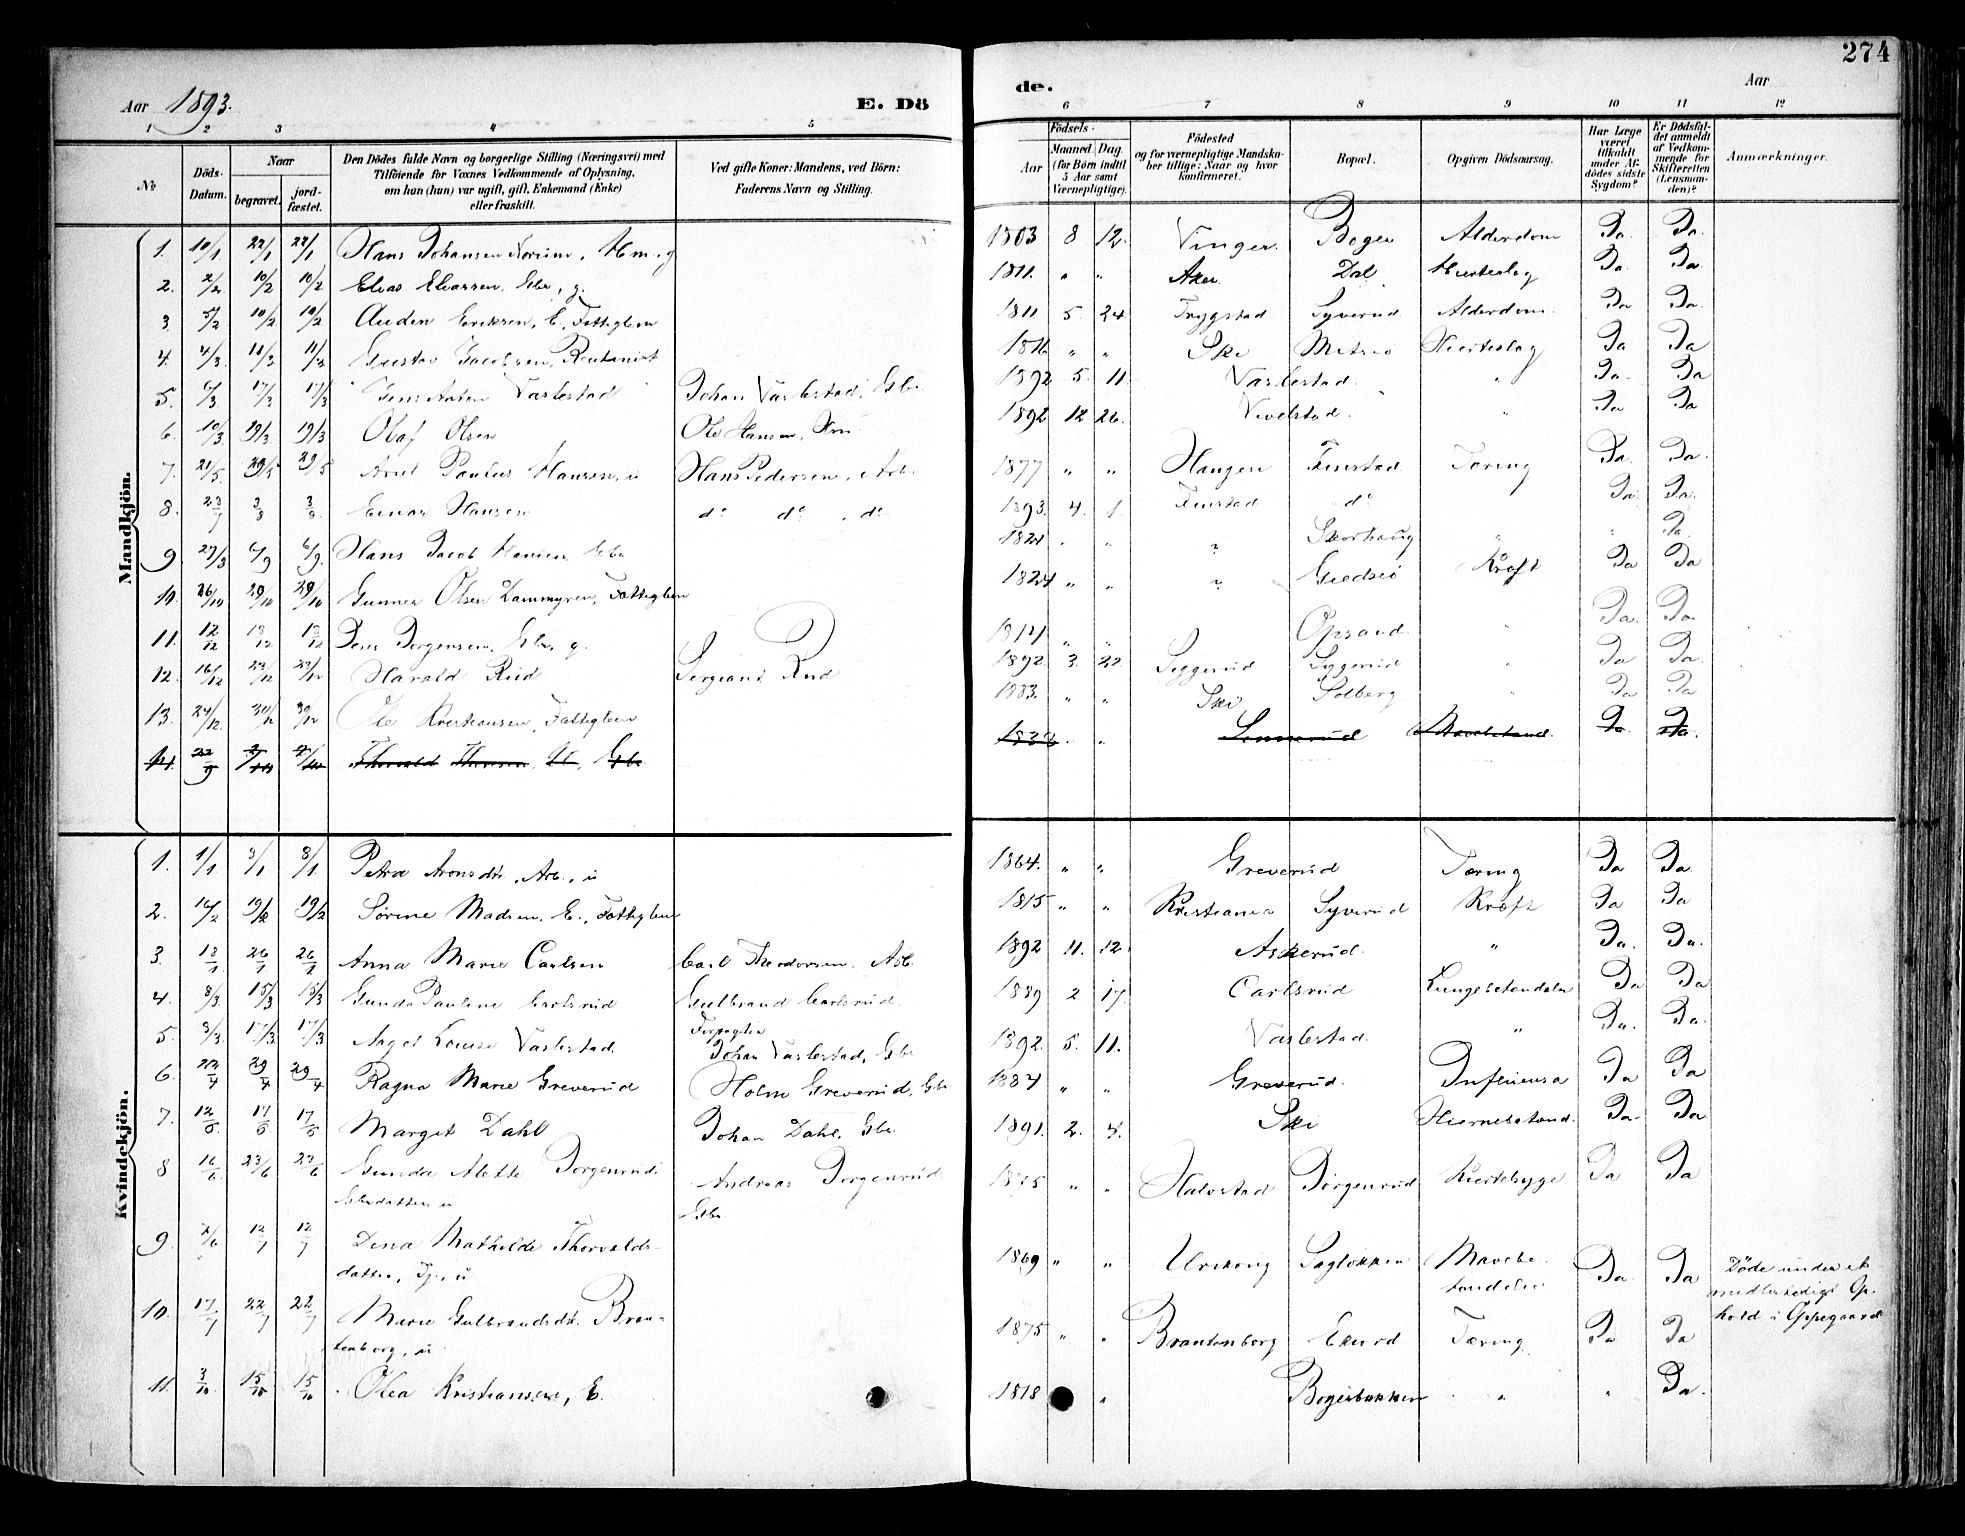 274
Aar 1893.
E. Dö
de.
Aar
1 2 3 4 5 6 7 8 9 10 11 12
No
Döds-Datum.
Naar
begravet.
jord-fæstet.
Den Dödes fulde Navn og borgerlige Stilling (Næringsvei) med
Tilföiende for Voxnes Vedkommende af Oplysning,
om han (hun) var ugift, gift, Enkemand (Enke)
eller fraskilt.
Ved gifte Koner: Mandens, ved Börn:
Faderens Navn og Stilling.
Födsels-
Aar
Maaned. Dag.
(for Börn indtil
5 Aar samt
Værnepligtige).
Födested
og for værnepligtige Mandska-
ber tillige: Naar og hvor
konfirmeret.
Bopæl.
Opgiven Dödsaarsag.
Har Læge
været
tilkaldt
under Af-
dödes sidste
Sygdom?
Er Dödsfal-
det anmeldt
af Vedkom-
mende for
Skifteretten
(Lensman-
den)?
Anmærkninger.
Mandkjön.
1. 10/1 22/1 22/1 Hans Johansen 1803 8 12. Vinger Alderdom Ja. Ja.
2. 10/2 10/2 Elias Eliassen, Gbr., g. 1811. " " Aker Dal Hjerteslag Ja. Ja
3. 5/2 10/2 10/2 Auden Eriksen, E., Fattiglem 1811 5. 24 Trygstad Syverud Alderdom Ja Ja
4. 4/3 11/3 11/3 Gustav Jacobsen 1816 " " Ski Hjerteslag Ja Ja
5. 17/3 17/3 Jens Anton Vastestad Johan Vastestad, Gbr. 1892 5. 11. Vastestad. " Ja. Ja
6. 10/3 19/3 19/3 Olaf Olsen Ole Hansen 1892 12 26. Vevelstad. " Ja Ja
7. 21/5 29/5 29/5 Paulus Hansen, u Hans Pedersen, Arb. 1877 " " Haugen Finstad Tæring Ja. Ja.
8. 23/7 3/8 3/8 Einar Hansen do do. do 1893. 4. 1. Finstad do Ja. Ja.
9. 6/9 6/9 Hans Jacob Hansen, Gbr 1821 " " ? Skorhaug " " Ja.
10. 26/10 29/10 29/10 Gunner Olsen Dammyren, Fattiglem 1824 " " ? Kræft Ja Ja
11. 12/12 Jens Jørgensen, Gbr, g. " " Opsand " Ja. Ja
12. 16/12 23/12 23/12 Harald Rud Sergeant Rud 1892 3. 22 Siggerud Siggerud " Ja Ja.
13. 24/12 30/12 30/12 Ole Kristiansen, Fattiglem 1883. " " Ski Solberg " Ja Ja
14. 22/9 Thorvald Gbr. " Ja Ja.
Kvindekjön.
1. 1/1 8/1 8/1 Petra Aronsdtr., Arb., u 1864. " " Greverud Tæring Ja Ja
2. 14/2 19/2 19/2 Sørine Madsen, E., Fattiglem 1815 " " Kristiania Syverud Kræft Ja Ja
3. 18/1 26/1 26/1 Anna Marie Carlsen Carl Theodorsen, Arb. 1892 11. 12. Askerud. " Ja. Ja.
4. 8/3 15/3 15/3 Gunda Pauline Carlsrud Gulbrand Carlsrud. 1889 2 17. Carlsrud Lungebetændelse Ja Ja
Forpagter
5. 8/3 17/3 17/3 Aagot Louise Vastestad Johan Vastestad, Gbr 1892. 5. 11. Vastestad. " Ja. Ja.
6. 22/4 29/4 29/4 Ragna Marie Greverud Holm Greverud, Gbr 1884 " " Greverud. Influensa Ja Ja
7. Margit Dahl Johan Dahl, Gbr. 1891. 2. Ski Hjernebetænd. Ja Ja
8 16/6 23/6 23/6 Gunda Alette Jørgenrud Andreas Jørgenrud 1875 " " Halvstad Jørgenrud Hjertesyge Ja Ja
Gbrdatter u Gbr.
9. 12/7 12/7 Dina Mathilde Thorvalds-
datter, Tj., u 1869 " " Urskoug Sagløkken Mavebe-
tændelse Ja. Ja Döde under et
midlertidigt Op-
hold i Oppegaard
10. 17/7 22/7 22/7 Marie Gulbrandsdtr. Bran-
tenborg, u 1875 " " Brantenborg Ekerud Tæring Ja Ja
11. 3/10 15/10 15/10 Olea Kristiansen, E. 1818 " Bogerbakken " " Ja.